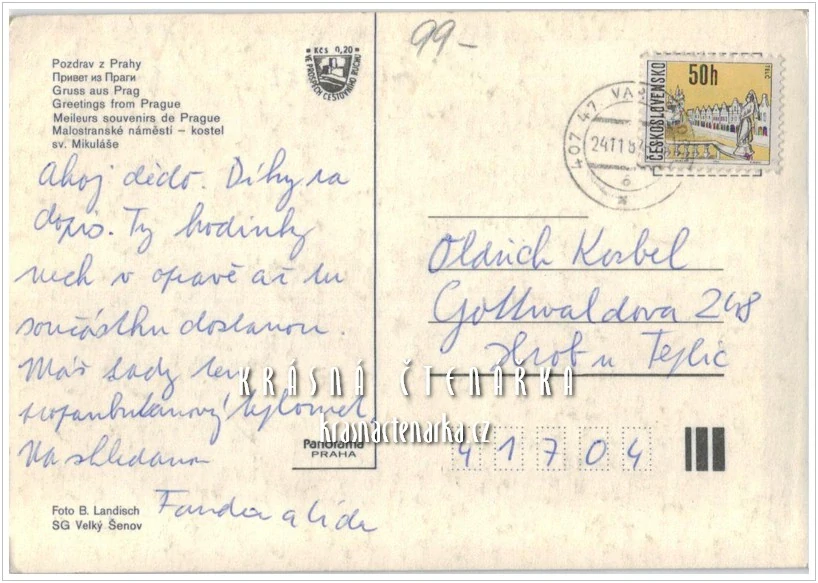 99-
Pozdrav z Prahy
Привет из Праги
Gruss aus Prag
Greetings from Prague
Meileurs souvenirs de Prague
Malostranské náměstí – kostel
sv. Mikuláše
Kčs 0,20
VE PROSPĚCH CESTOVNÍHO RUCHU
ČESKOSLOVENSKO
50h
TELČ
407 47 VA
24.11.8
Ahoj dědo. Díky za
dopis. Ty hodinky
nech v opravě až tu
součástku dostanou.
Máš tady ten
Na shledanou
Fanda a Lída
Oldřich Korbel
Gottwaldova 248
Hrob u Teplic
41704
KRÁSNÁ ČTENÁŘKA
krasnactenarka.cz
Panorama
PRAHA
Foto B. Landisch
SG Velký Šenov